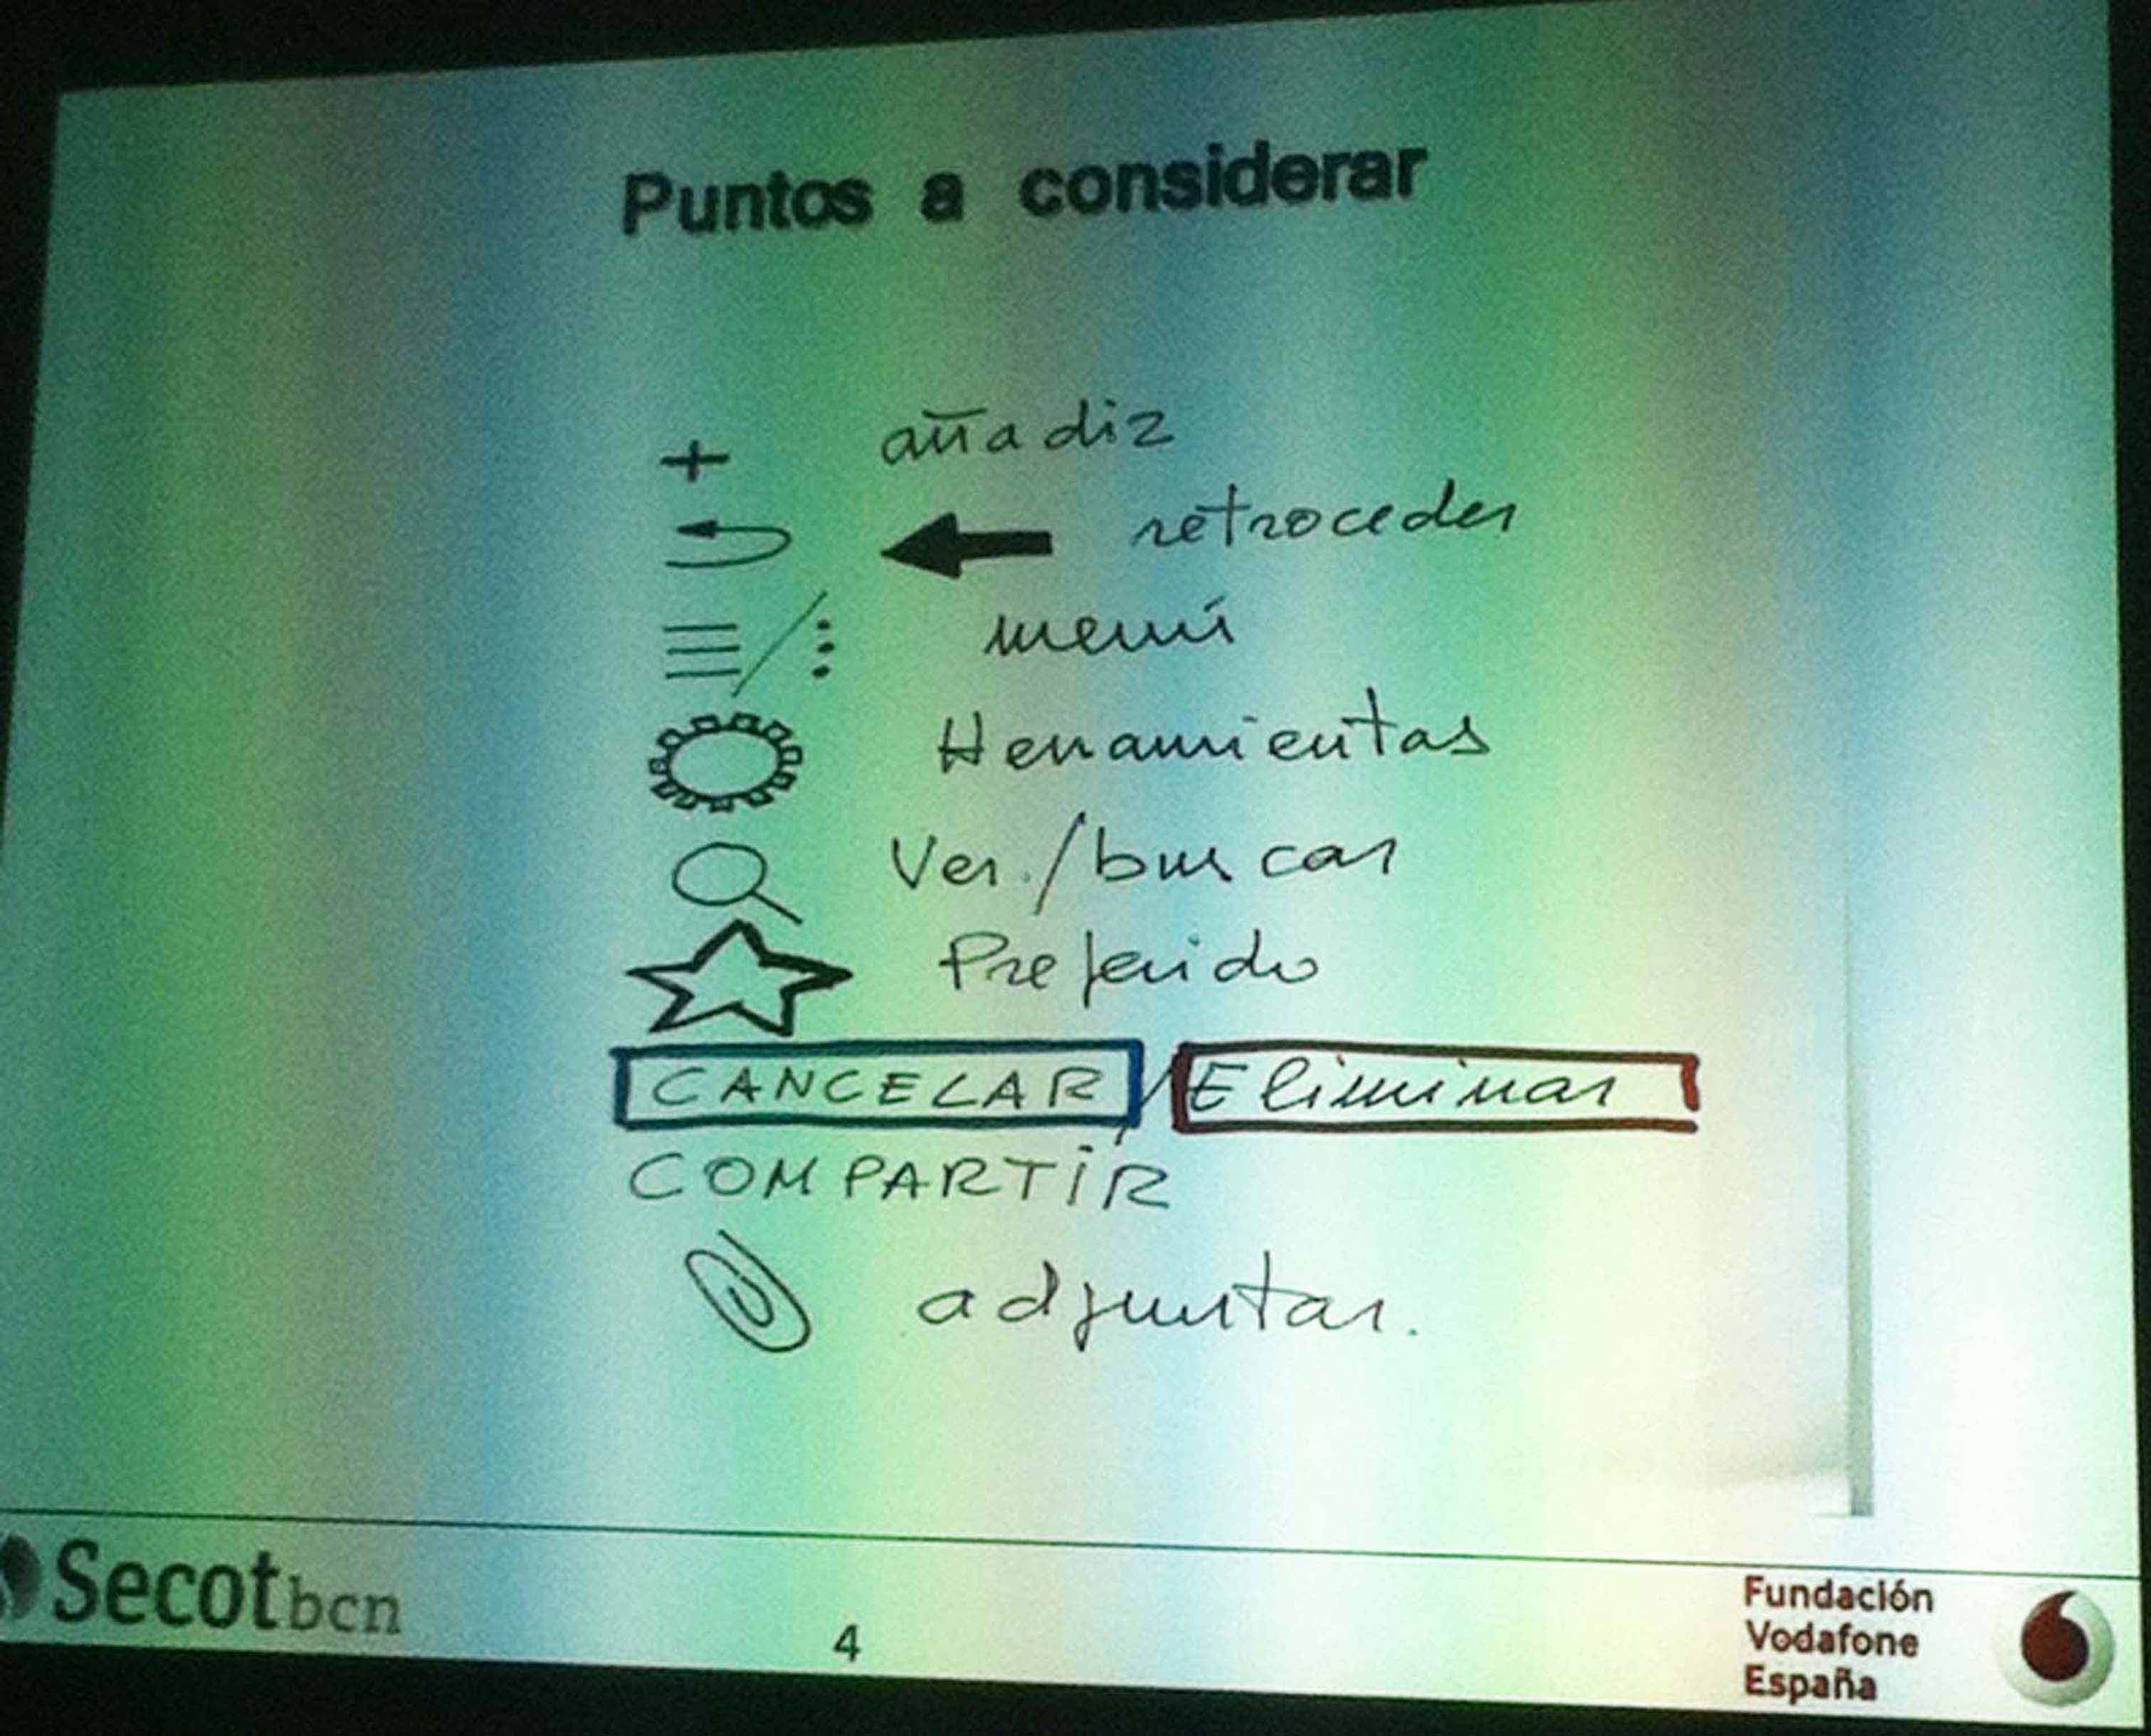 Puntos a considerar
+ añadir
retroceder
menú
Herramientas
Ver./buscar
Preferido
CANCELAR / Eliminar
COMPARTIR
adjuntar.
Secot bcn
4
Fundación
Vodafone
España